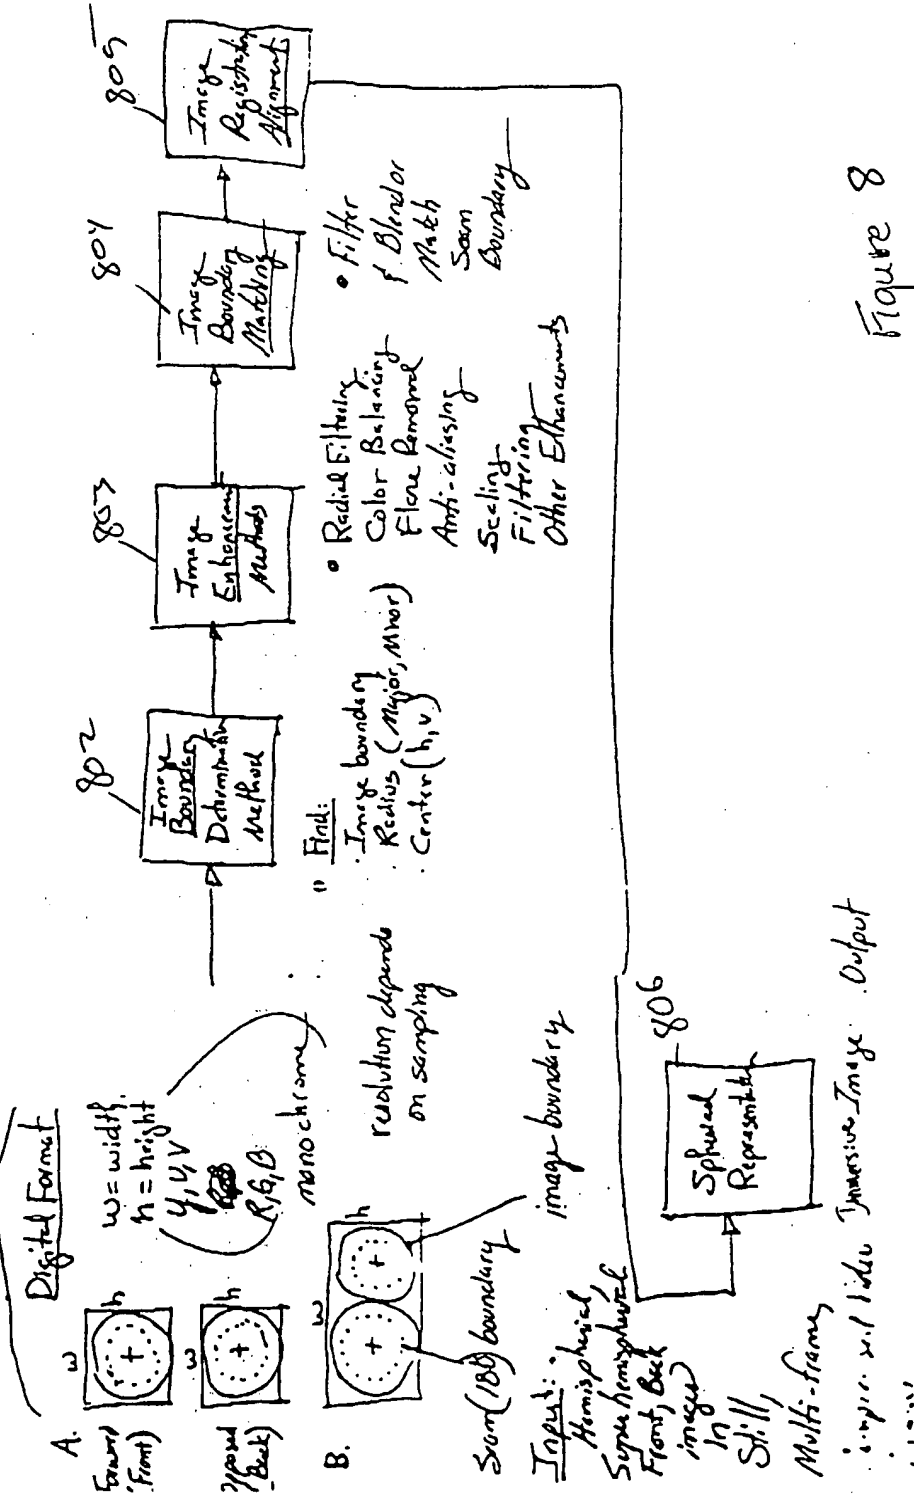 Digital Format
A.
w
h
Forward
(Front)
w = width,
h = height
Y, U, V
R, G, B
monochrome
w
h
Opposed
Back)
B.
w
h
resolution depends
on sampling
image boundary
(180) boundary
Input:
Hemispherical,
Super hemispherical
Front, Back
images
In
Still,
Multi-frame,
Immersive Image Output
802
Image
Boundary
Determination
Method
Find:
· Image boundary
· Radius (Major, Minor)
· Center (h, v)
803
Image
Enhancement
Methods
• Radial Filtering
Color Balancing
Flare Removal
Anti-aliasing
Scaling
Filtering
Other Enhancements
804
Image
Boundary
Matching
• Filter
& Blend or
Match
Seam
Boundary
805
Image
Registration
Alignment
806
Spherical
Representation
Figure 8